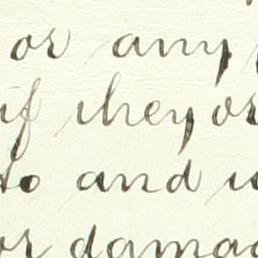 or any
if they or
and
or damag